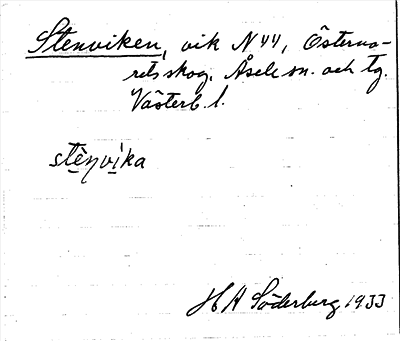 Stenviken, vik N 44, Österno-
rets skog. Åsele sn. och tg.
Västerb. l.
stènvìka
H A Söderberg 1933